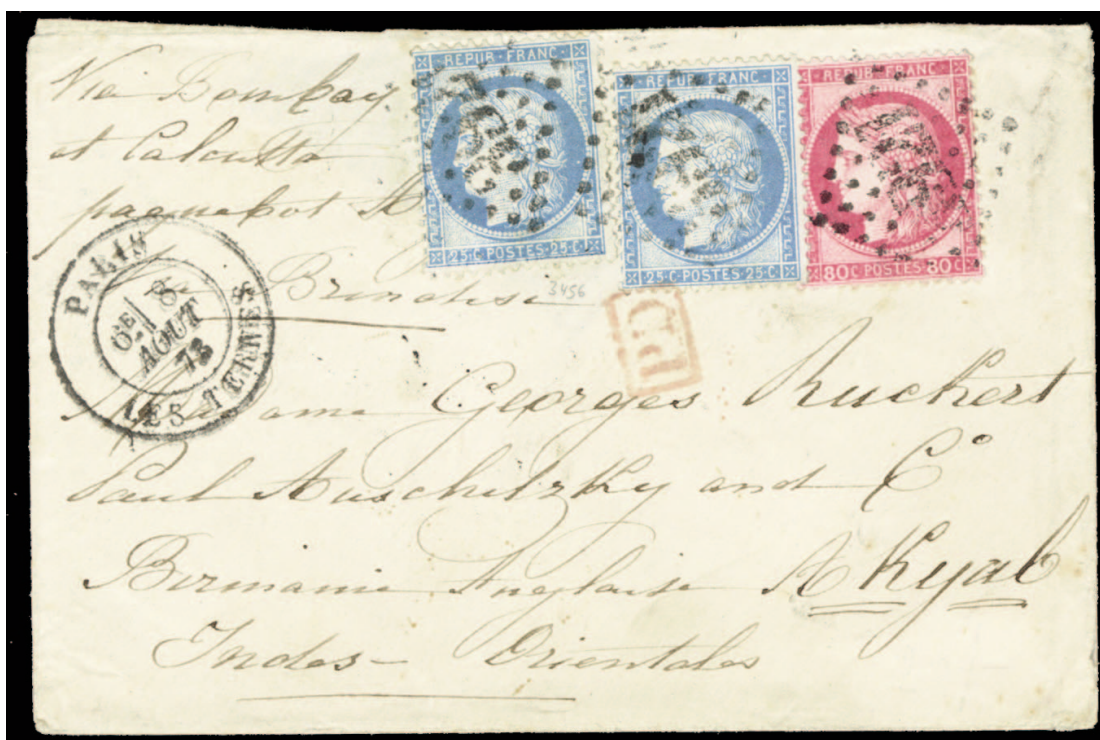 Via Bombay
et Calcutta
paquebot A
Brindisi
REPUB·FRANC
25 C·POSTES·25 C
REPUB·FRANC
25 C·POSTES·25 C
REPUB·FRANC
80 C POSTES 80 C
3456
PD
PARIS
6E
8
AOUT
73
LES TERNES
Madame Georges Ruckert
Paul Auschitzky and Co
Birmanie Anglaise AKyab
Indes-Orientales